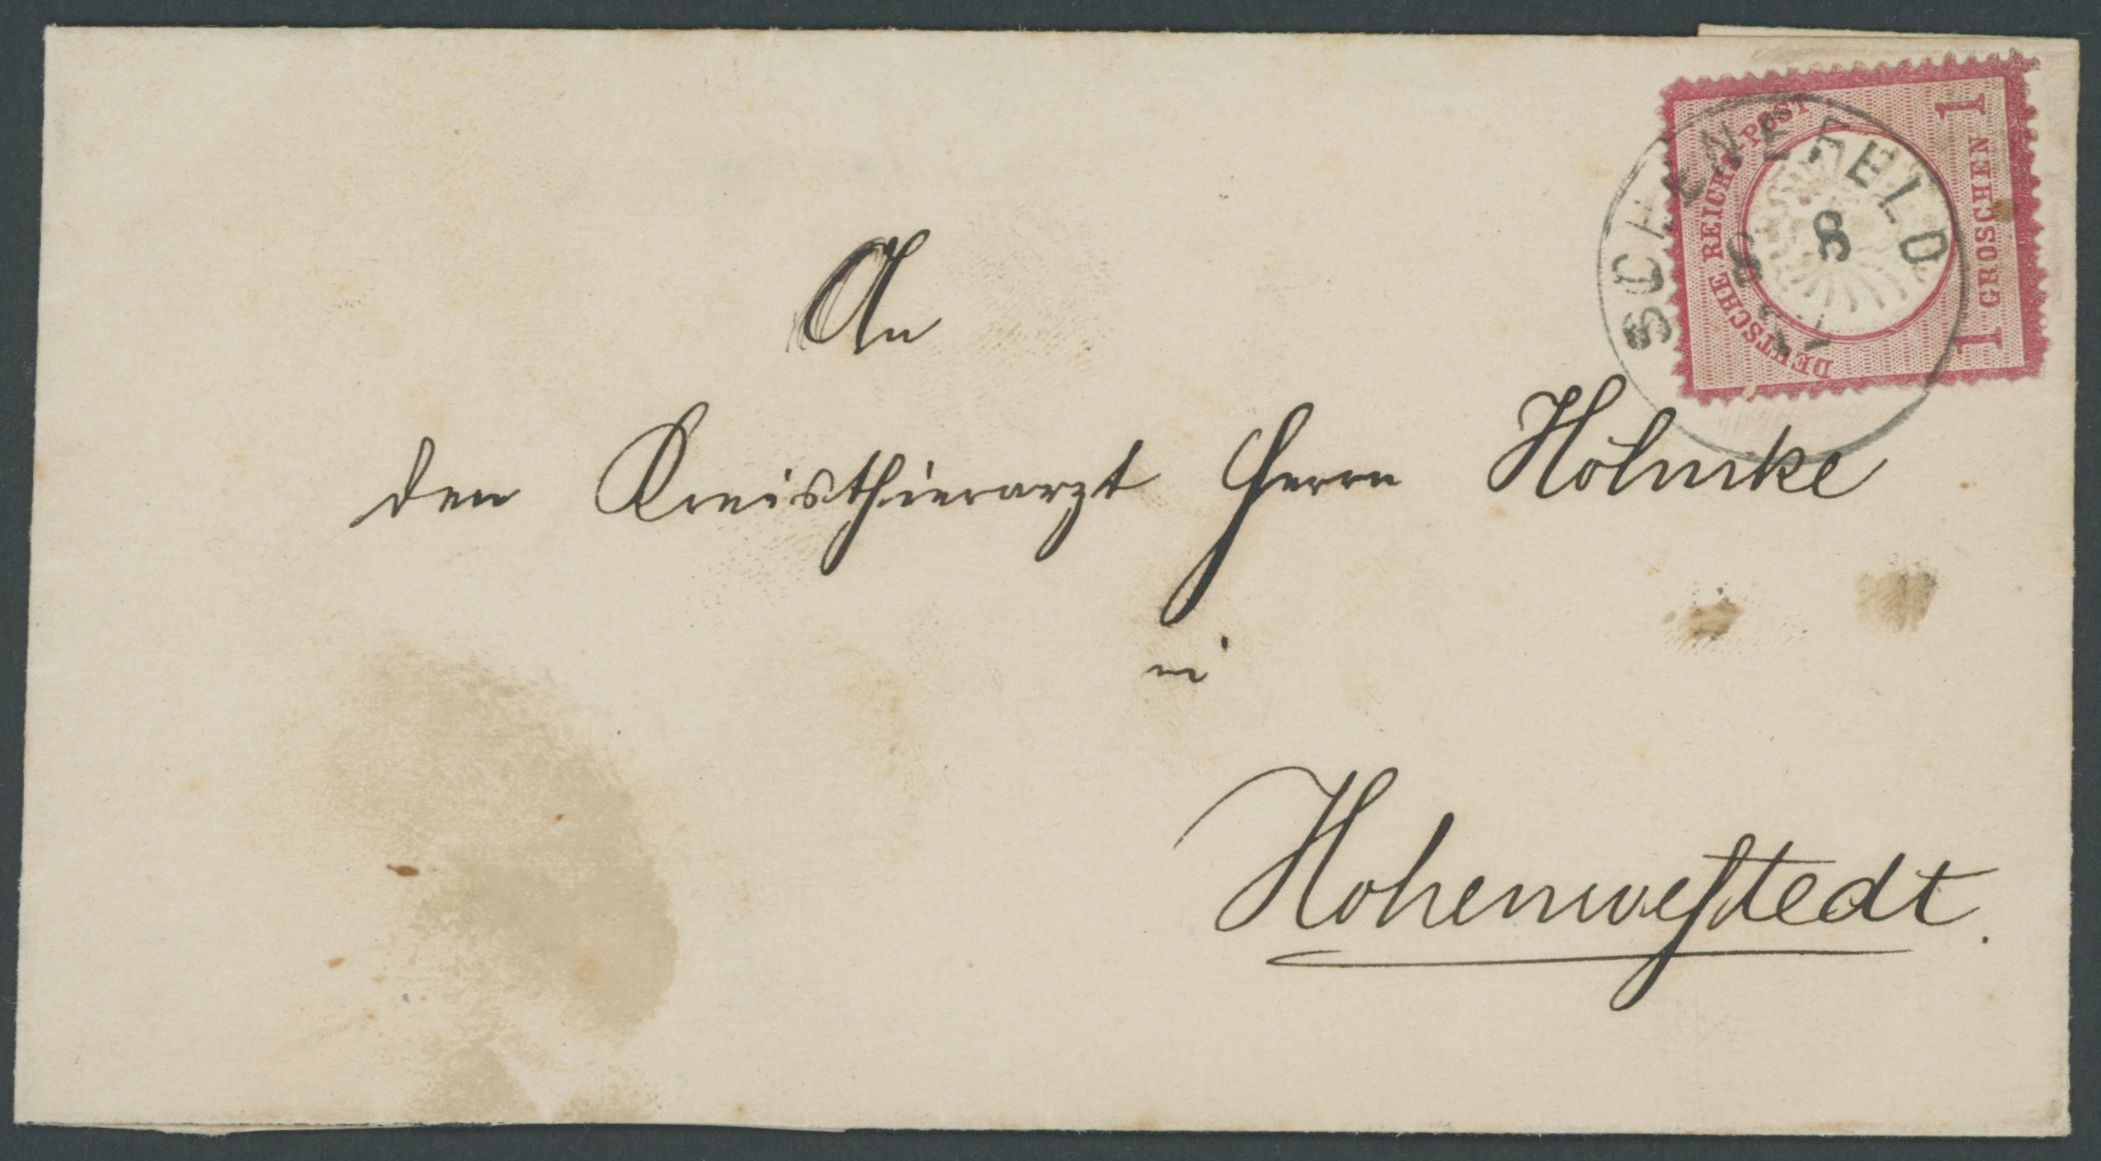 DEUTSCHE REICHS-POST
1 GROSCHEN 1
SCHENEFELD
8
8
An
den Kreisthierarzt Herrn
in
Hohenweſtedt.